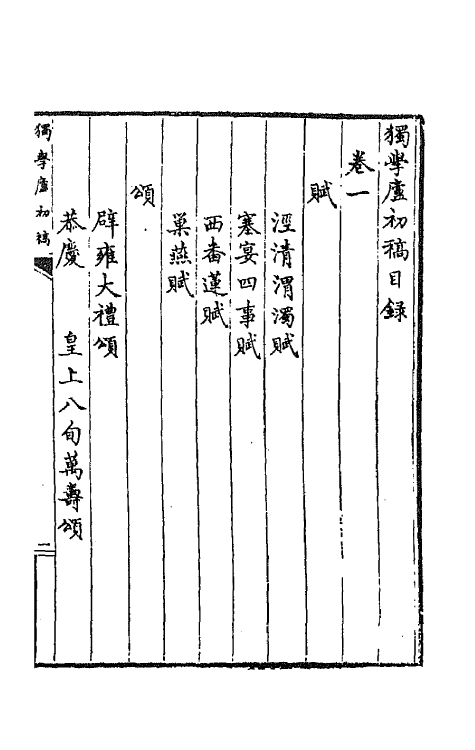 獨學廬初稿目録
卷一
賦
涇清渭濁賦
塞宴四事賦
西番蓮賦
巢燕賦
頌
辟雍大禮頌
恭慶　皇上八旬萬壽頌
獨學廬初稿
一